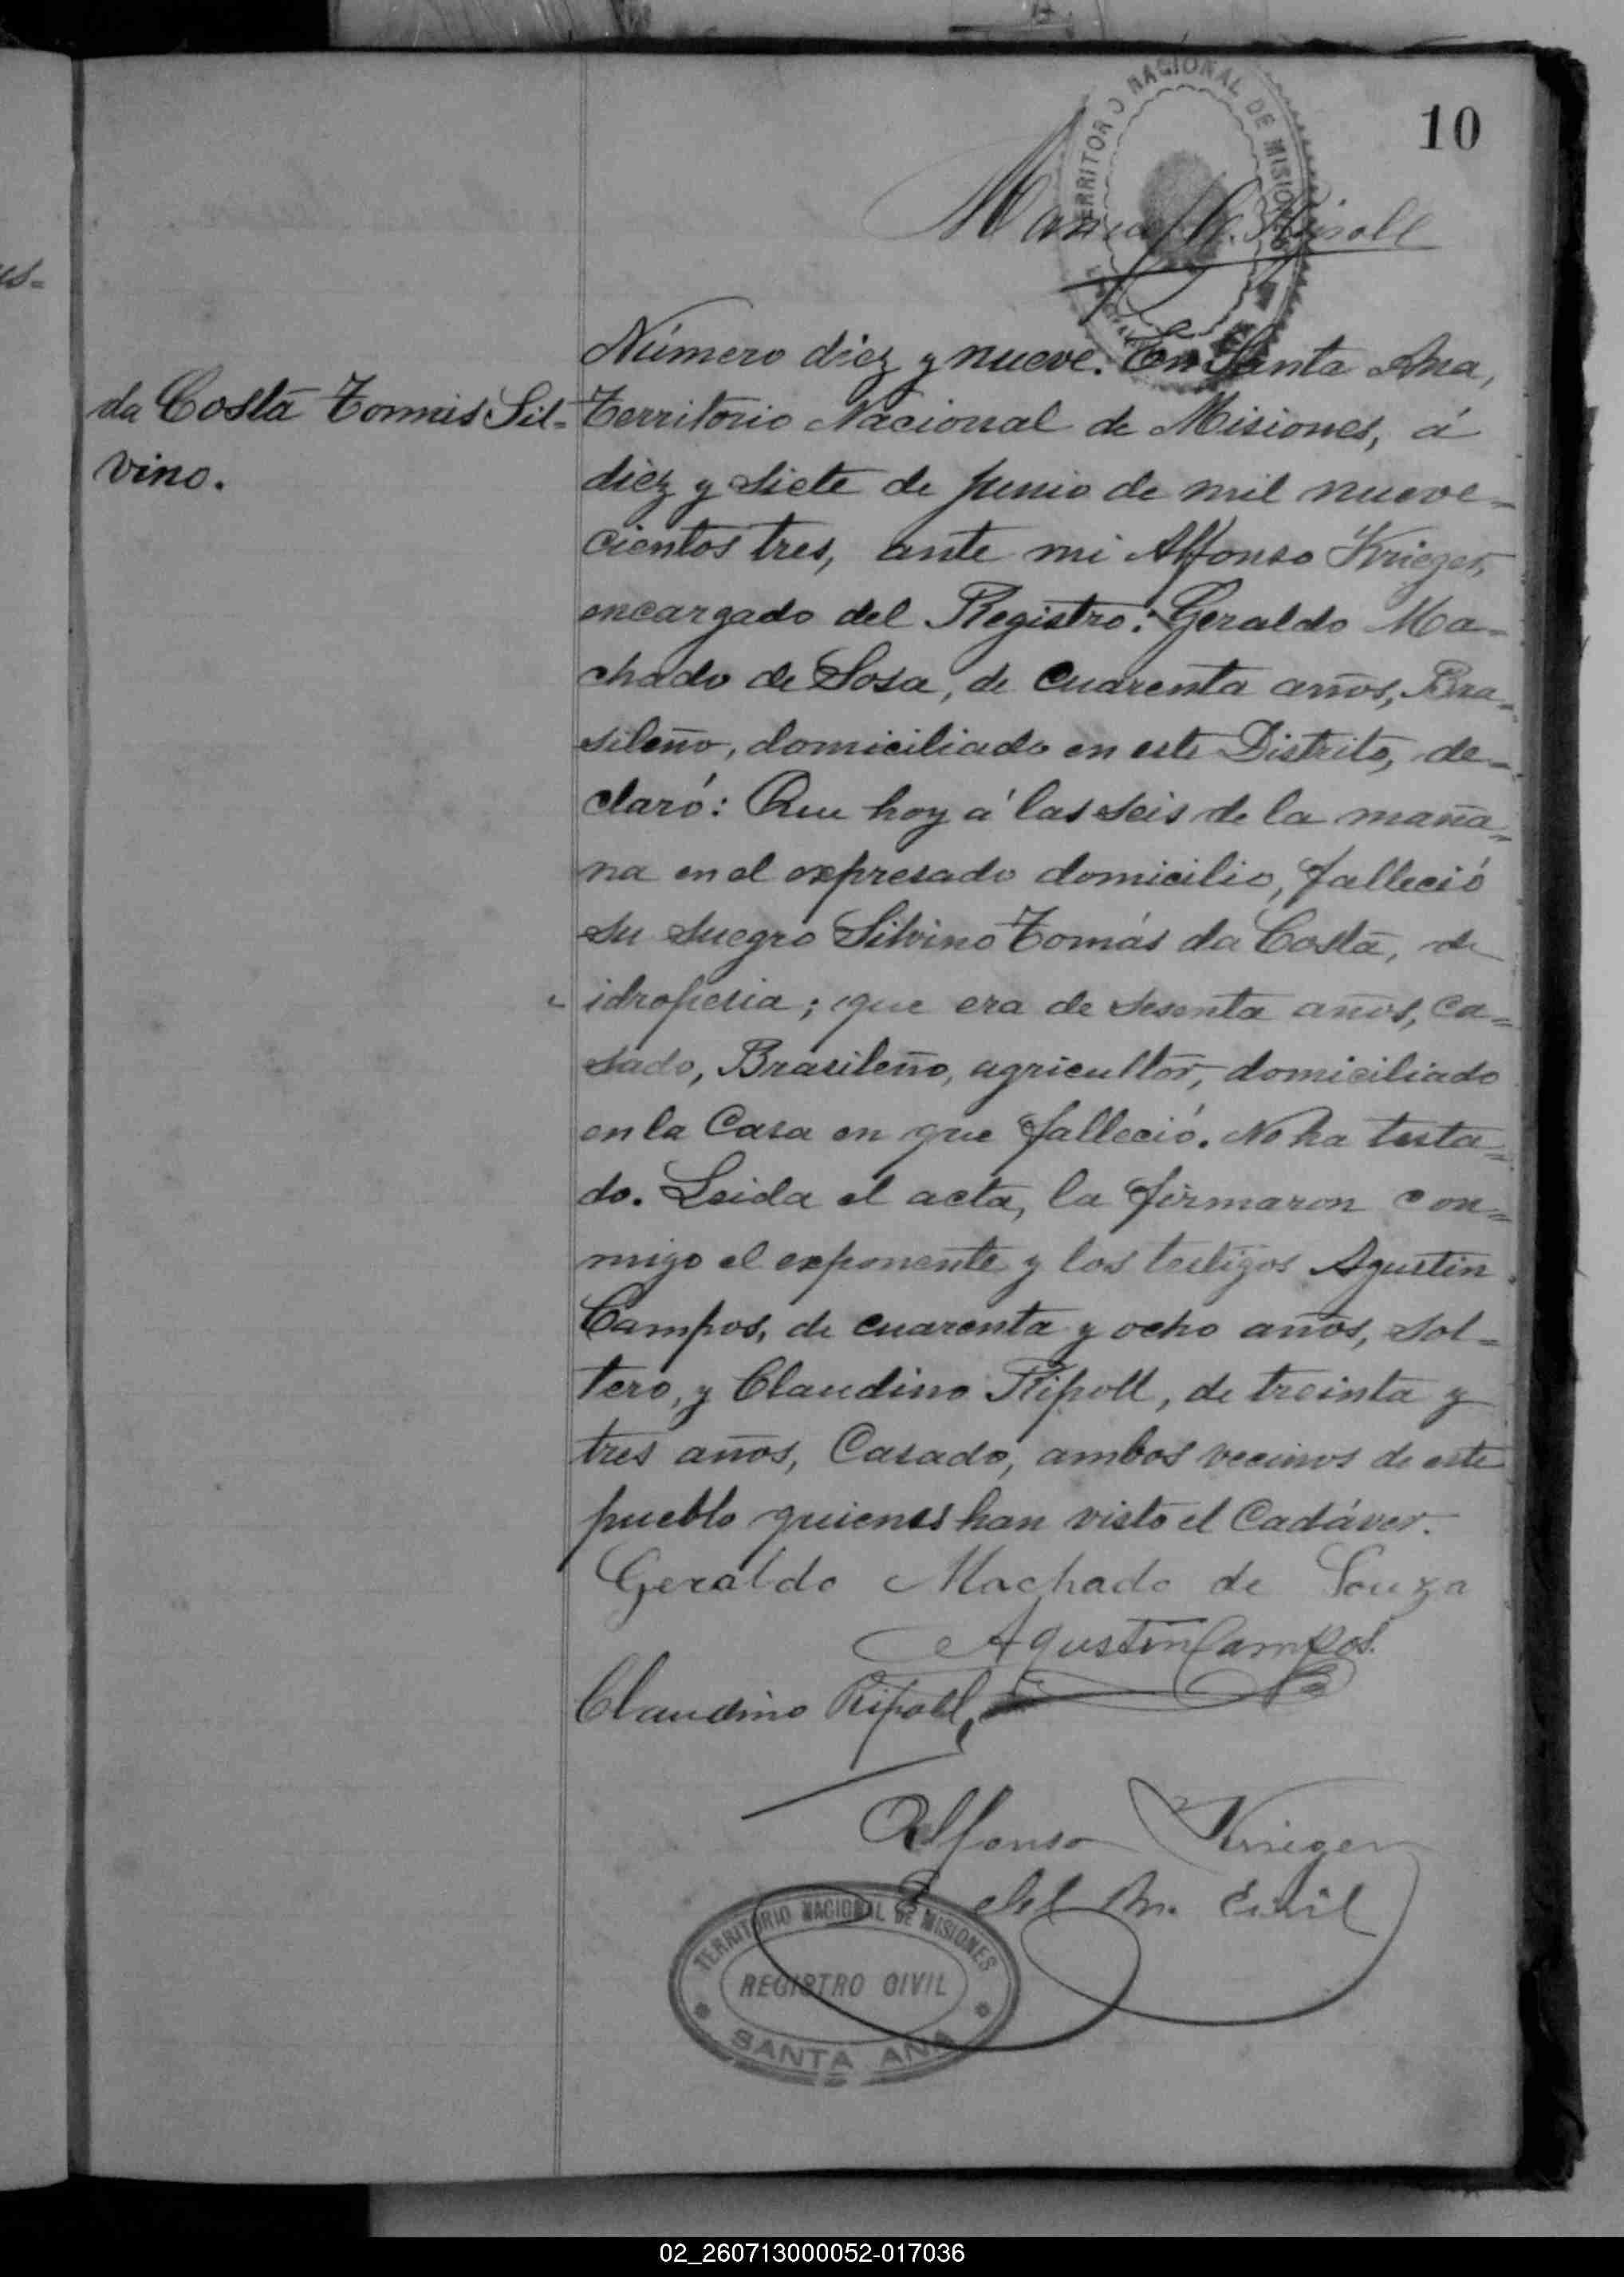 10
TERRITORIO NACIONAL DE MISIONES
Ripoll
Número diez y nueve. En Santa Ana,
da Costa Tomás Sil=
vino.
Territorio Nacional de Misiones, á
diez y siete de Junio de mil nueve=
cientos tres, ante mi Alfonso Krieger,
encargado del Registro: Geraldo Ma=
chado de Sosa, de cuarenta años, Bra=
sileño, domiciliado en este Distrito, de=
claró: Que hoy á las seis de la maña=
na en el expresado domicilio, falleció
su suegro Silvino Tomás da Costa, de
idropesia; que era de sesenta años, ca=
sado, Brasileño, agricultor, domiciliado
en la Casa en que falleció. No ha testa=
do. Leida el acta, la firmaron con=
migo el exponente y los testigos Agustin
Campos, de cuarenta y ocho años, sol=
tero, y Claudino Ripoll, de treinta y
tres años, Casado, ambos vecinos de este
pueblo quienes han visto el Cadáver.
Geraldo Machado de Souza
Agustin Campos.
Claudino Ripoll,
Alfonso Krieger
del Civil
TERRITORIO NACIONAL DE MISIONES
REGISTRO CIVIL
SANTA ANA
02_260713000052-017036